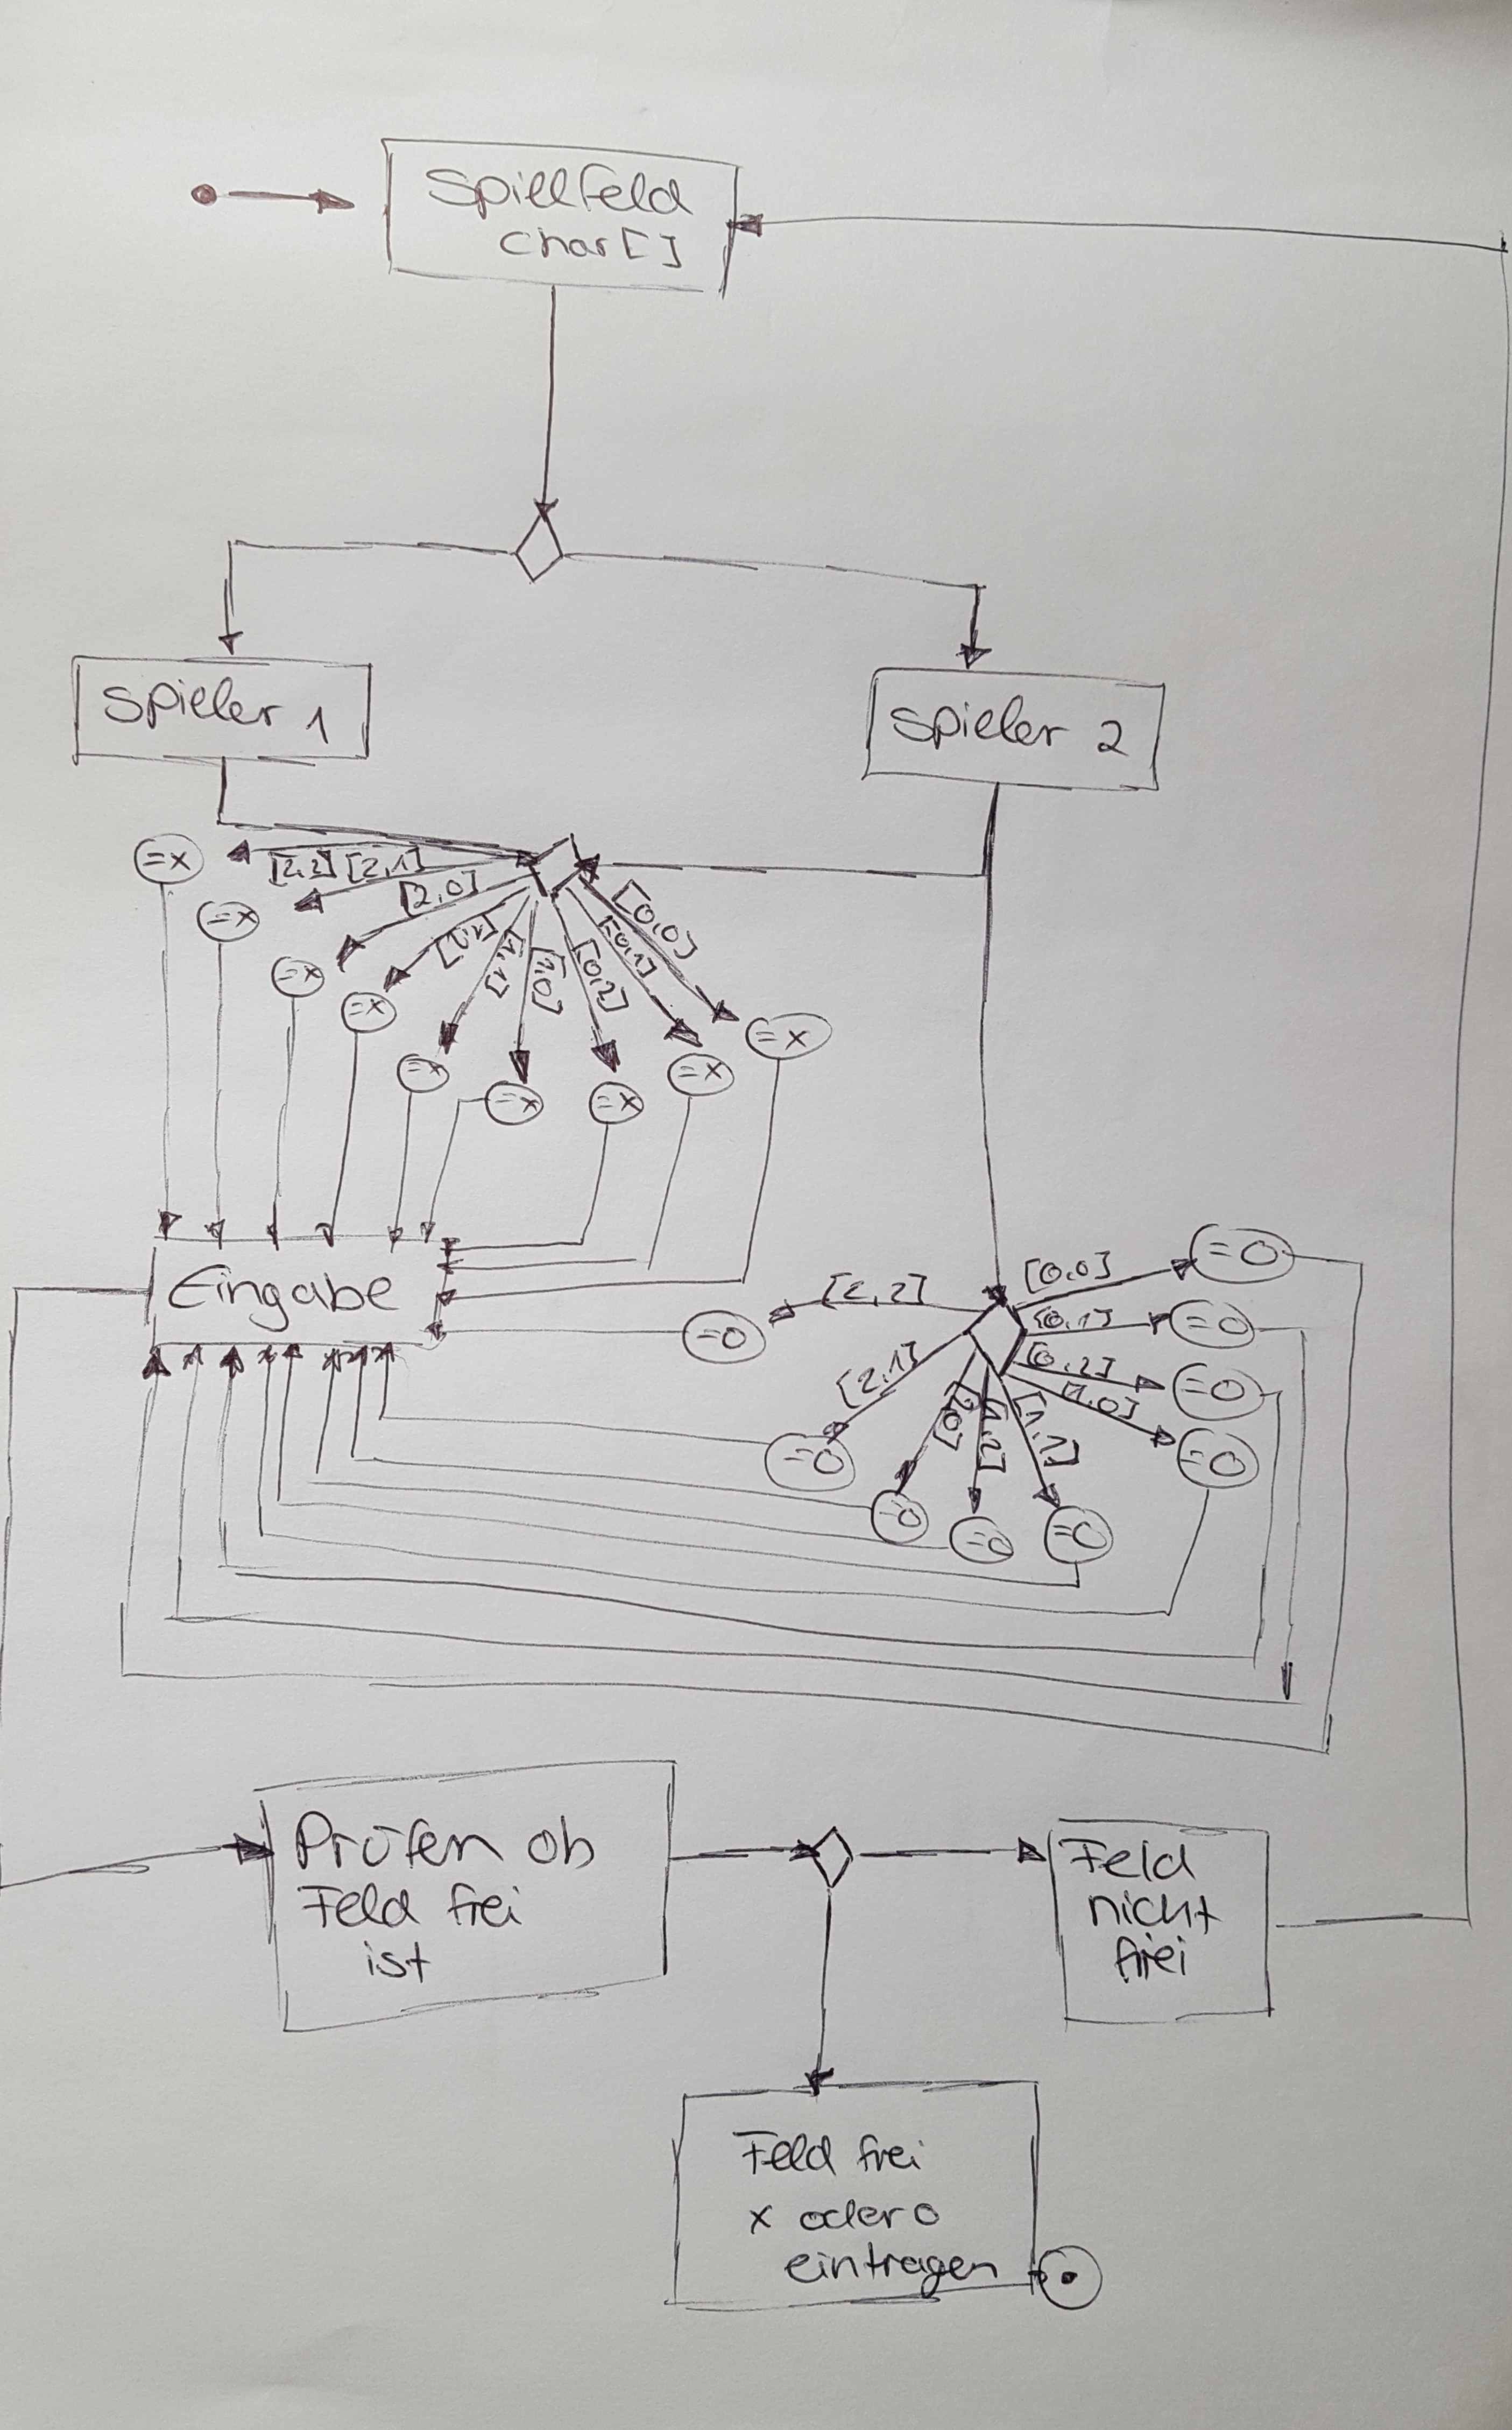 Spielfeld
char[]
Spieler 1
Spieler 2
=x
[2,2] [2,1]
=x
[2,0]
=x
=x
[1,1]
[1,0]
[0,2]
[0,1]
[0,0]
=x
=x
=x
=x
=x
Eingabe
[2,2]
=0
[0,0]
=0
[0,1]
=0
[0,2]
=0
[1,0]
=0
[2,1]
=0
[2,0]
=0
[1,2]
=0
[1,1]
=0
Prüfen ob
Feld frei
ist
Feld
nicht
frei
Feld frei
x oder 0
eintragen